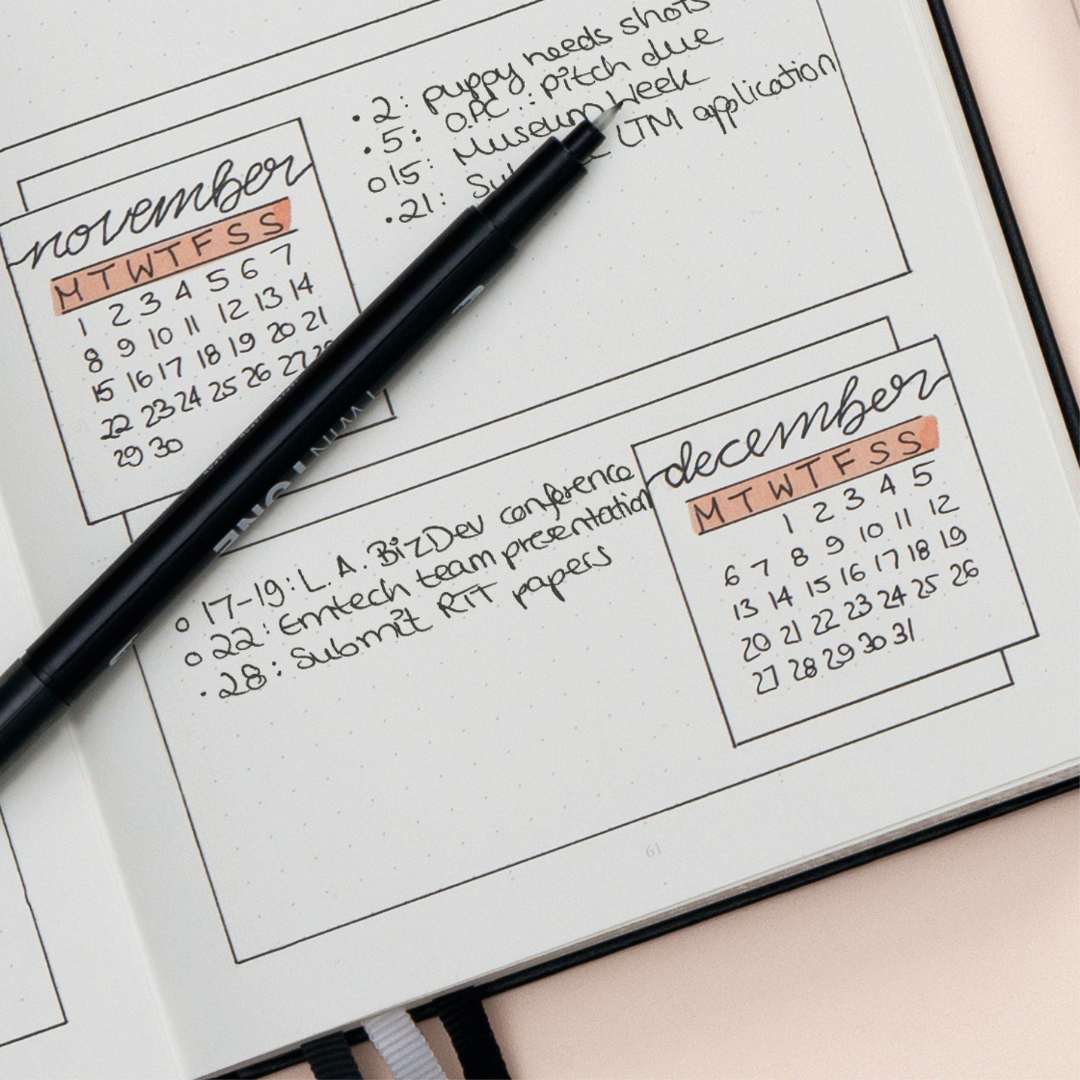 november
M T W T F S S
1 2 3 4 5 6 7
8 9 10 11 12 13 14
15 16 17 18 19 20 21
22 23 24 25 26 27 28
29 30
• 2: puppy needs shots
• 5: O.P.C.: pitch due
o 15: Museum Week
• 21: LTM application
TWIN TONE
december
M T W T F S S
1 2 3 4 5
6 7 8 9 10 11 12
13 14 15 16 17 18 19
20 21 22 23 24 25 26
27 28 29 30 31
o 17-19: L.A. BizDev conference
o 22: Emtech team presentation
• 28: Submit RIT papers
61